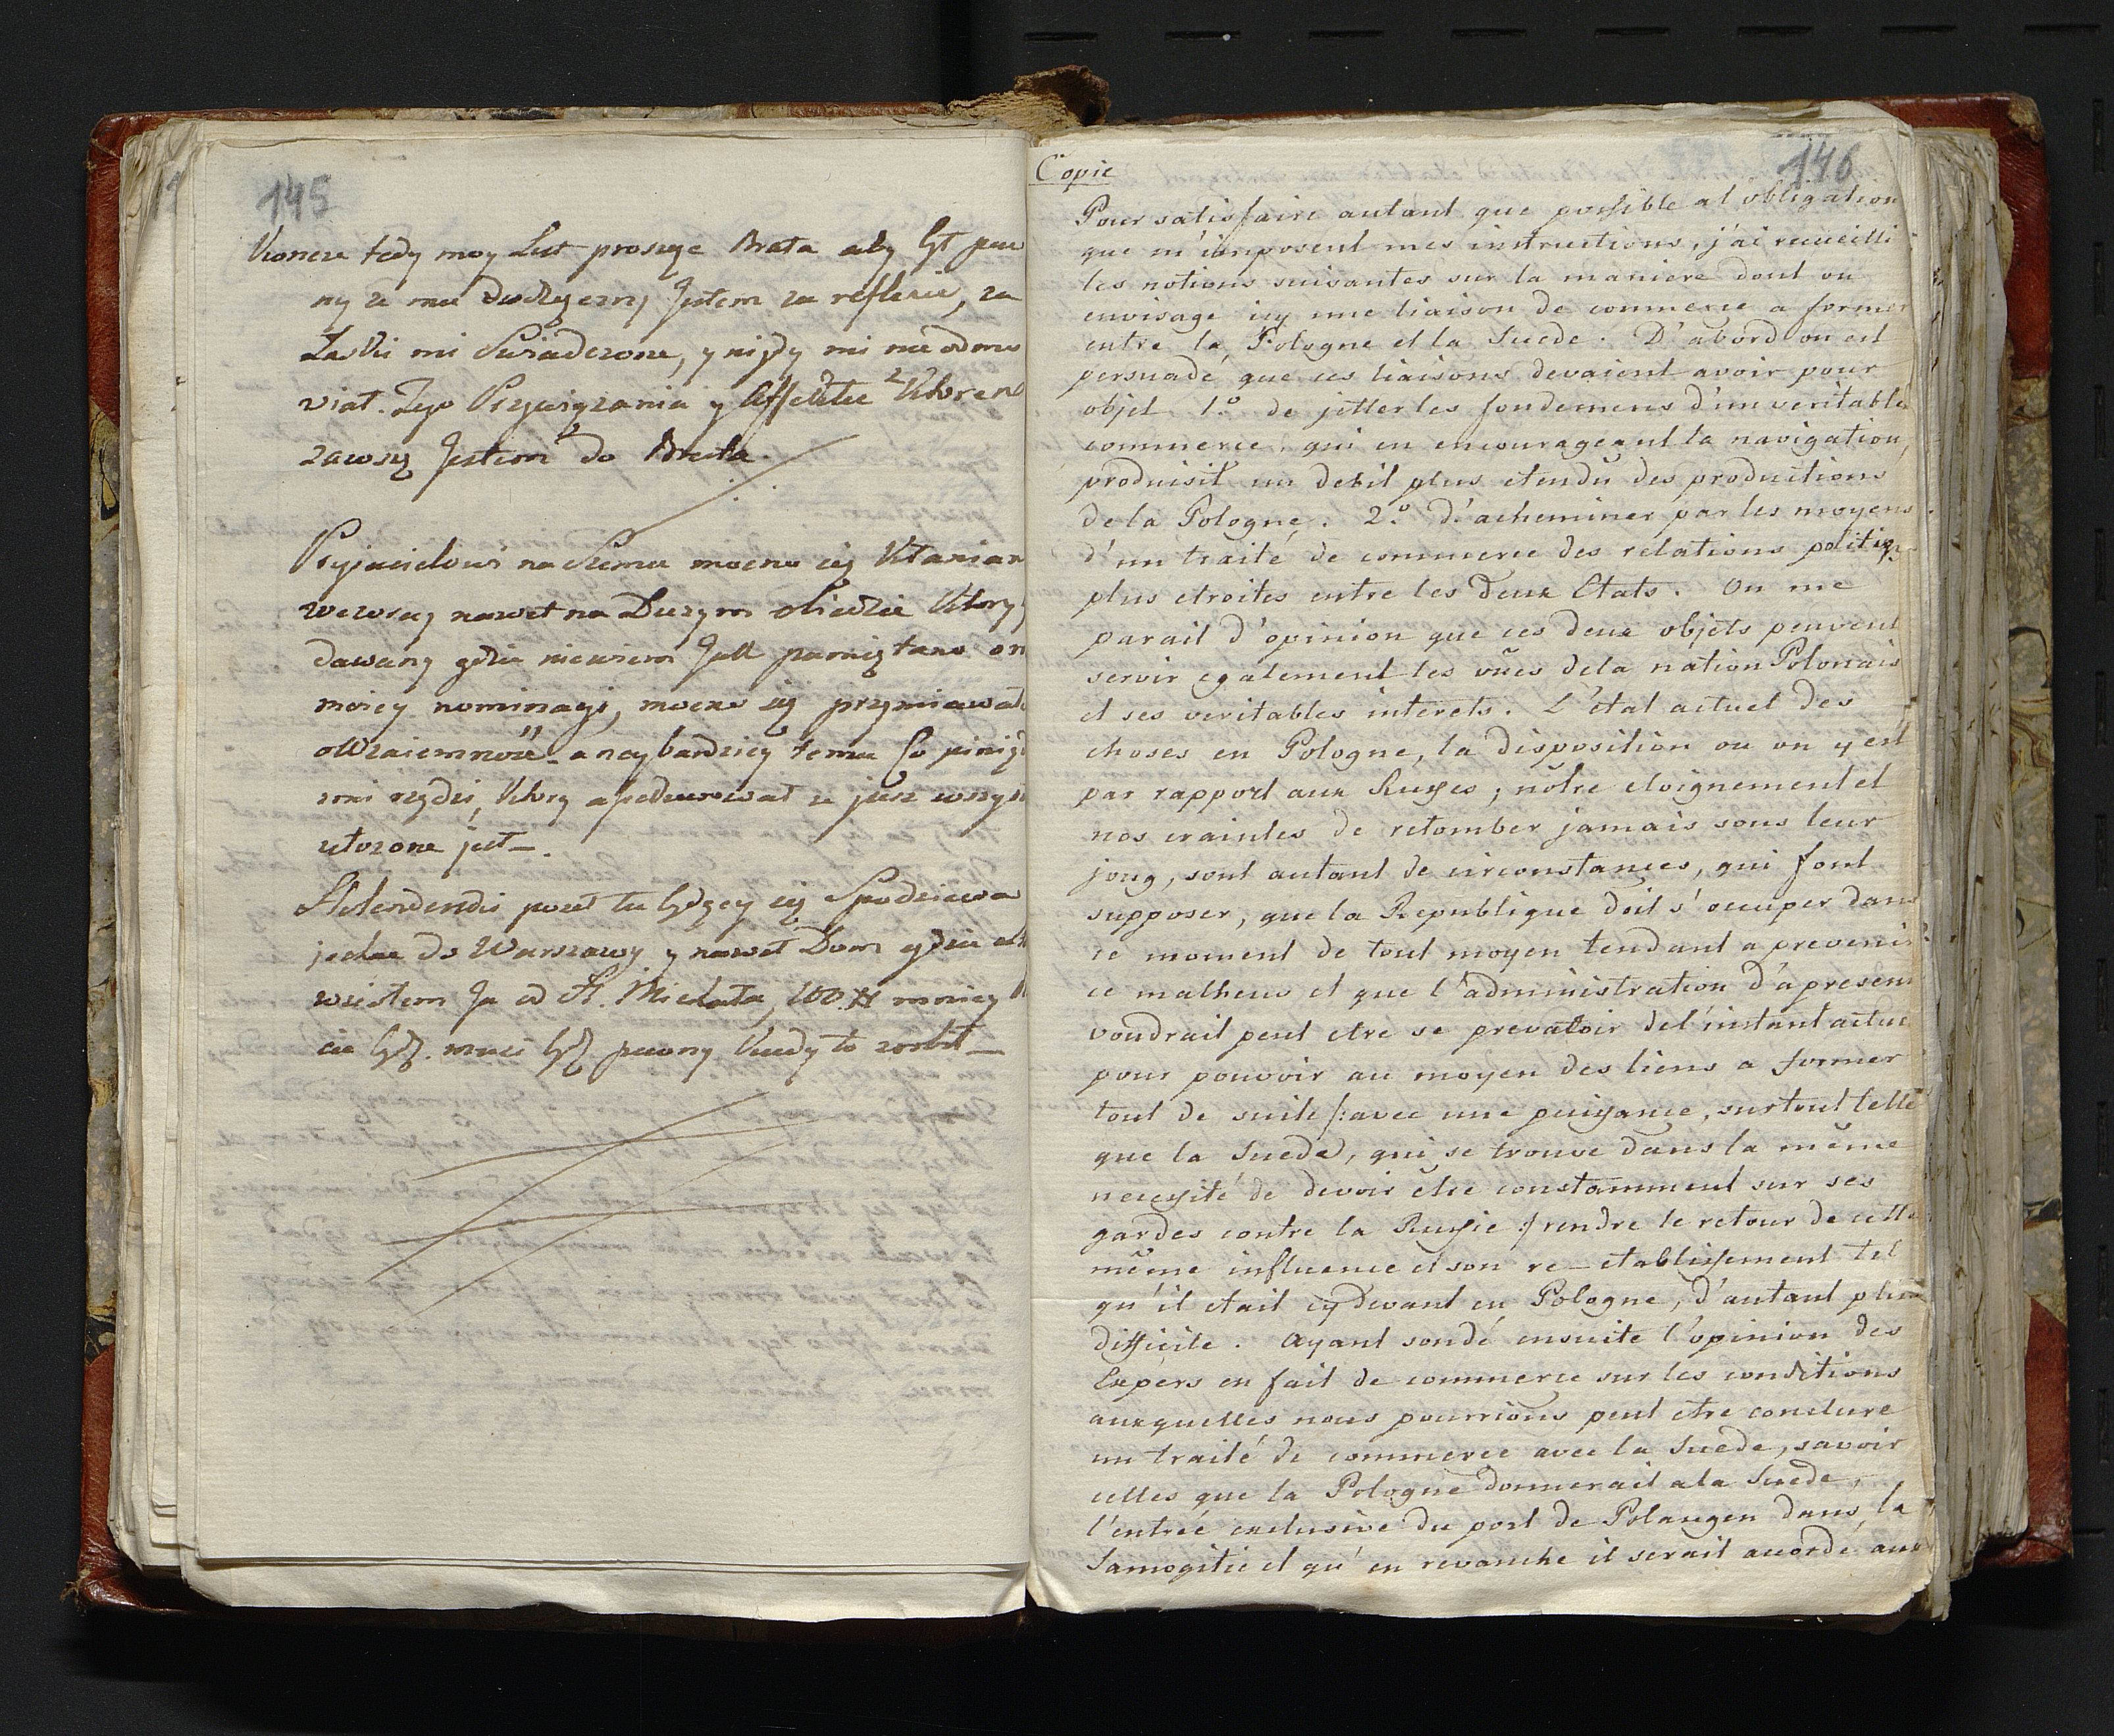 145
Koncze tedy moy List proszę Brata aby był pew
ny że mu Jestem za reflexie, za
Łaski mi Swiadczone, y nigdy mi nie odmo
wiał. Jego Przywiązania y Affektu z Ktorem
zawsze Jestem do Brata.
Przyjacielowi na Seymie mocno się Kłaniam
nawet na Duzym obiedzie Ktory
dawany gdzie niewiem Jak pamiętano o
moiey nominacyi, mocno się
o Wzaiemność a naybardziey temu Co
rządzi, Ktory ze jusz
złozone jest.
tu będący się Spodziewa
jechać do Warszawy y nawet Dom gdzie
Ja od 100 # mniey
pewny Kiedy to zrobił
146
Copie
Pour satisfaire autant que possible al obligation
que m'imposent mes instructions, j'ai recueilli
les notions suivantes sur la maniere dont on
envisage icy une liaison de commerce a former
entre la Pologne et la Suede. D'abord on est
persuadé que ces liaisons devaient avoir pour
objet 1.º de jetter les fondemens d'un veritable
commerce, qui en encourageant la navigation,
produisit un debit plus etendu des productions
de la Pologne. 2.º d'acheminer par les moyens
d'un traité de commerce des relations politiq.
plus etroites entre les deux Etats. On me
parait d'opinion que ces deux objets peuvent
servir egalement les vües dela nation Polonais
et ses veritables interets. L'état actuel des
choses en Pologne, la disposition ou on y est
par rapport aux Russes, nôtre eloignement et
nos craintes de retomber jamais sous leur
joug, sont autant de circonstances, qui font
supposer, que la Republique doit s'occuper dans
ce moment de tout moyen tendant a prevenir
ce malheur et que l'administration d'apresent
voudrait peut etre se prevaloir del'instant actuel
pour pouvoir au moyen des liens a former
tout de suite /: avec une puissance, surtout telle
que la Suede, qui se trouve dans la même
necessité de devoir être constamment sur ses
gardes contre la Russie :/ rendre le retour de cette
même influence et son re-etablissement tel
qu'il etait cy devant en Pologne, d'autant plus
difficile. Ayant sondé ensuite l'opinion des
Expers en fait de commerce sur les conditions
auxquelles nous pourrions peut etre conclure
un traité de commerce avec la Suede, savoir
celles que la Pologne donnerait ala Suede,
l'entrée exclusive du port de Polangen dans la
Samogitie et qu'en revanche il serait accordé aux